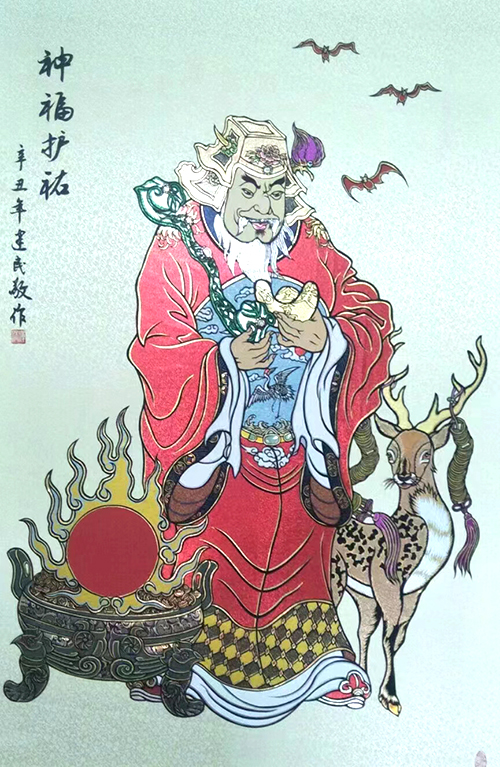 神福护祐
辛丑年建民敬作